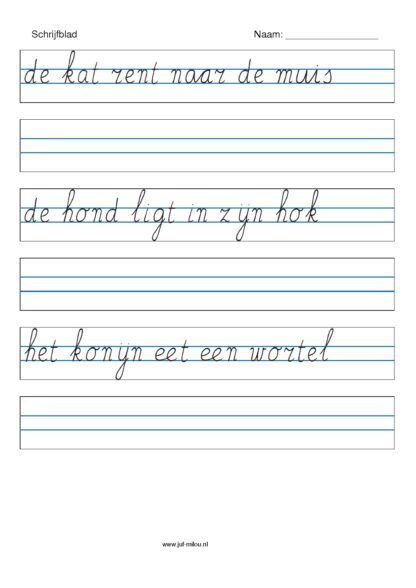 Schrijfblad Naam: ____________________
de kat rent naar de muis
de hond ligt in zijn hok
het konijn eet een wortel
www.juf-milou.nl